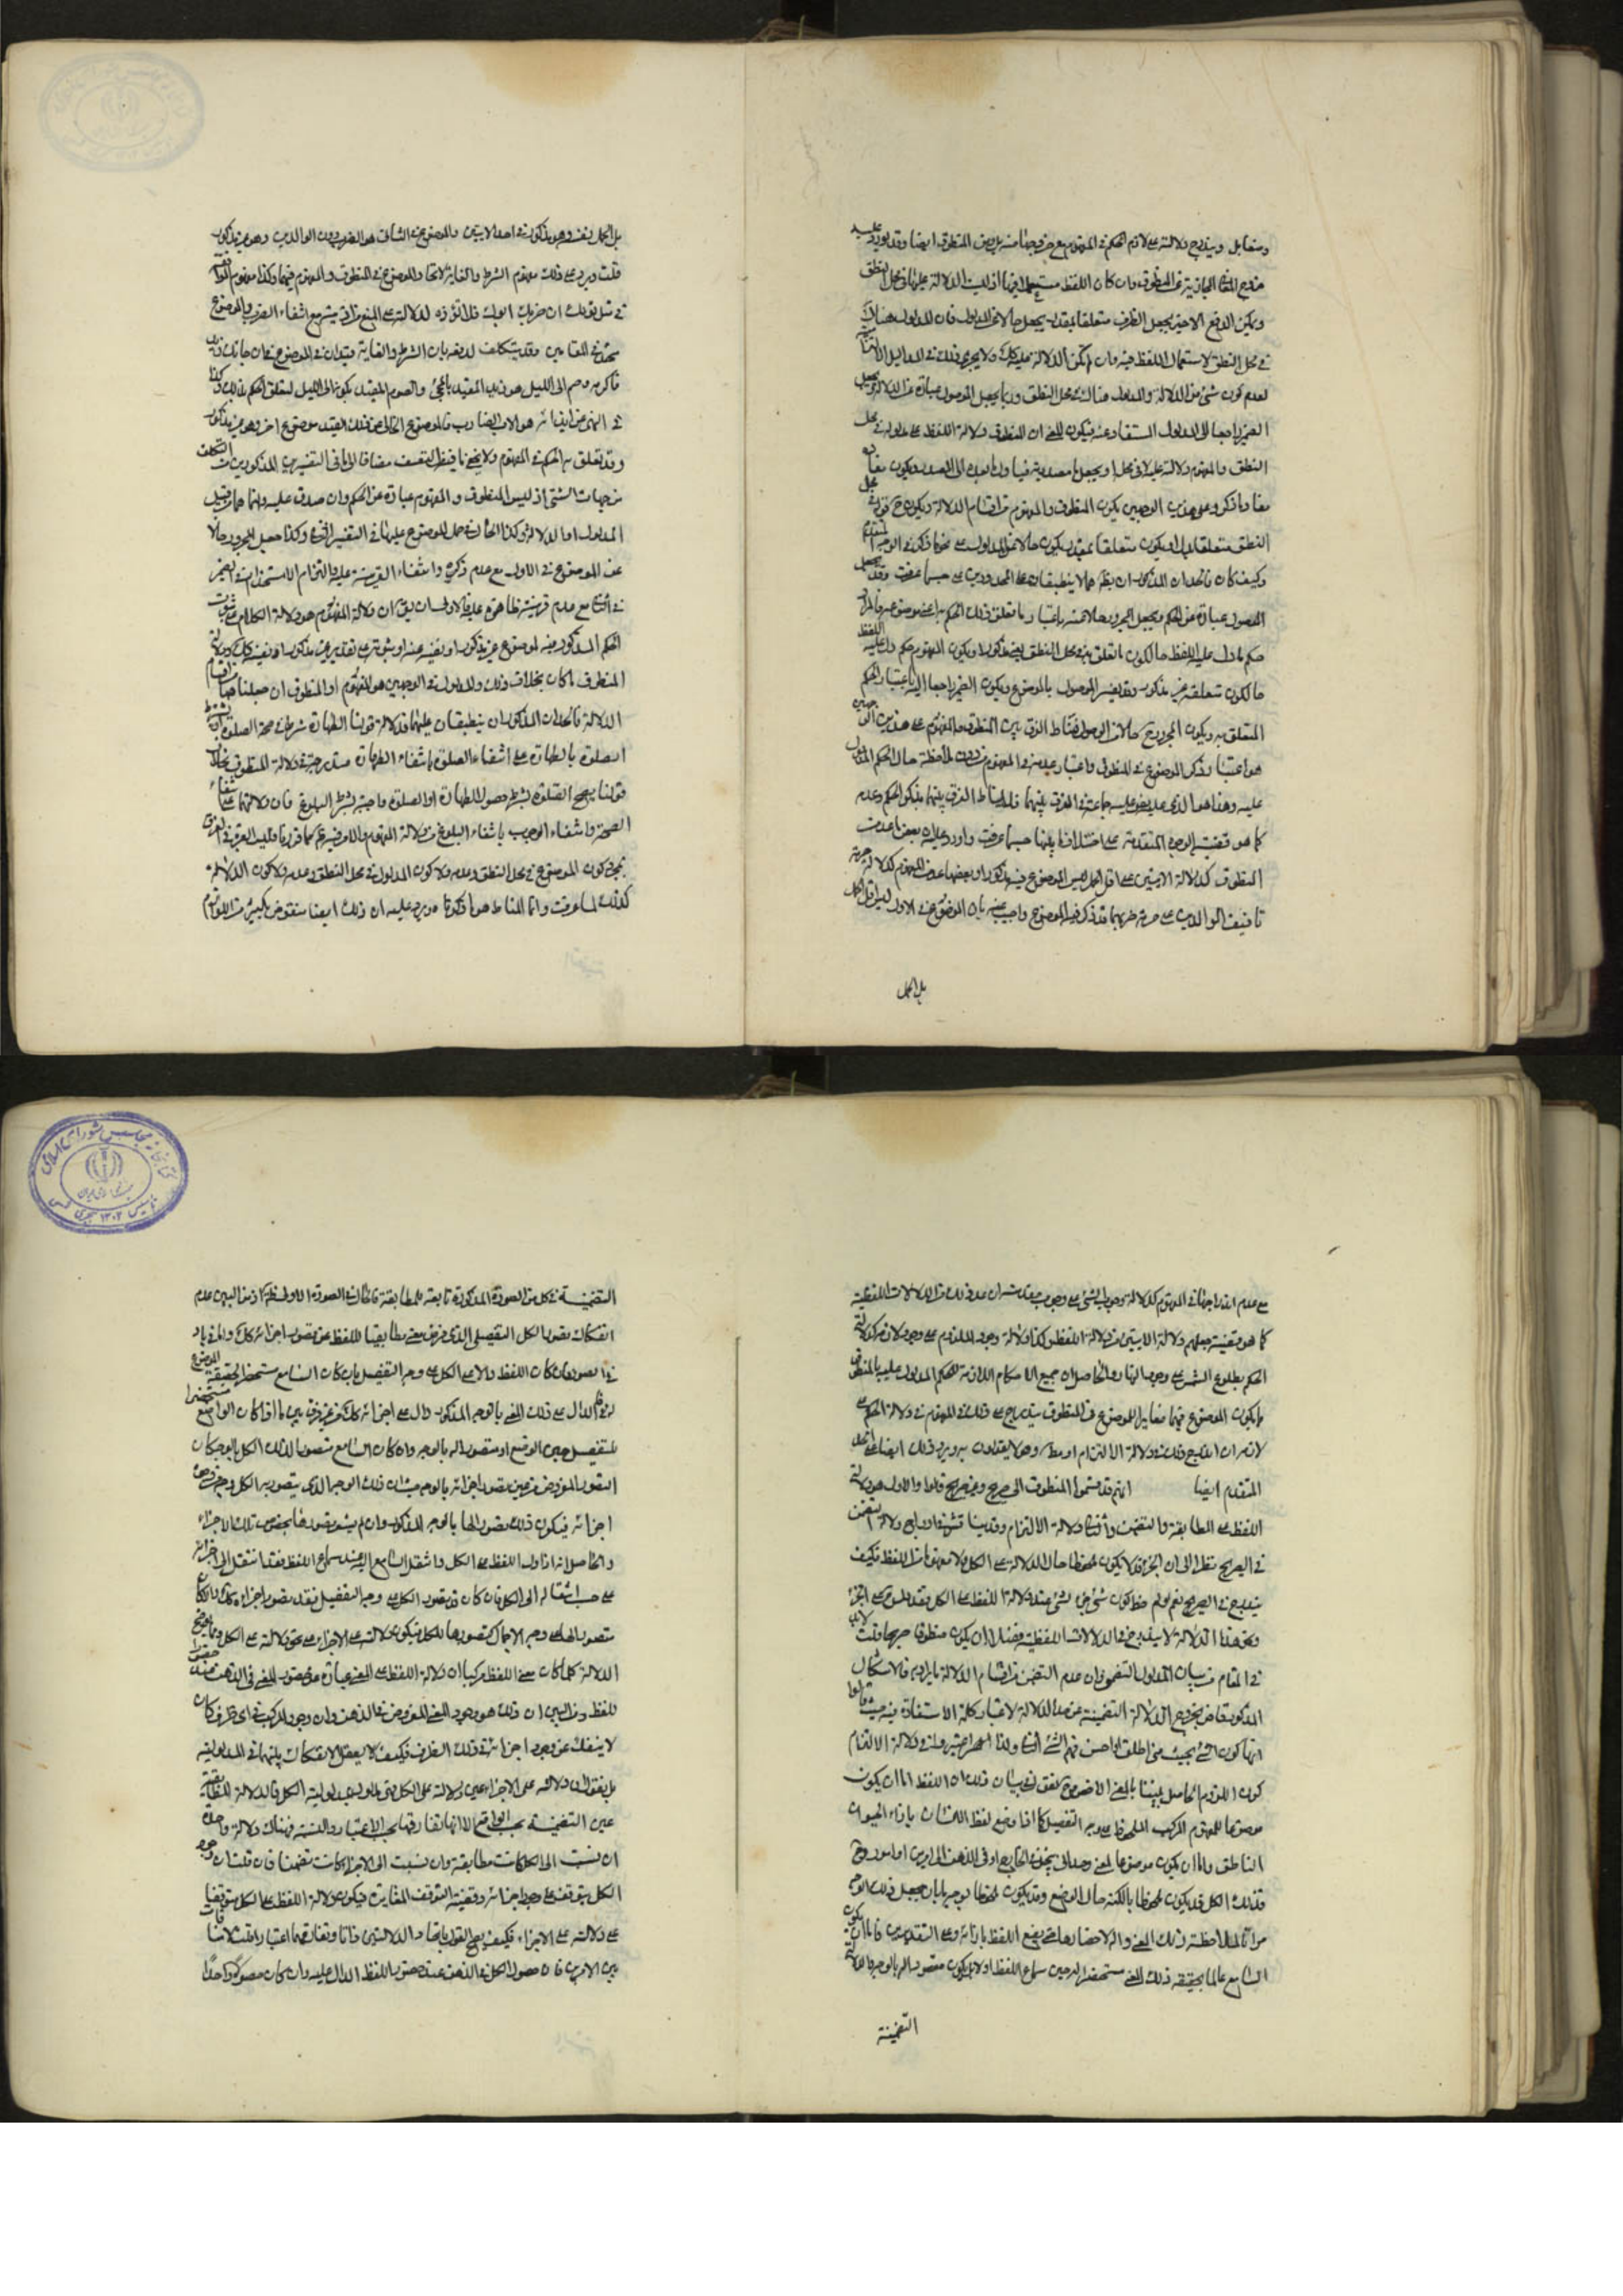 ومقابل ويندرج دلالته على لازم الحكم في المفهوم مع خروجها منه بل من المنطوق ايضا وقد يورد عليه
خروج المعاني المجازية عن المنطوق وان كان اللفظ مستعملا فيها اذ ليست الدلالة عليها في محل النطق
ويمكن الدفع الاخير بجعل الظرف متعلقا بمقدر يجعل حالا عن المدلول فان المدلول هناك
في محل النطق لاستعمال اللفظ فيه وان لم يكن الدلالة عليه كك ولا يجري ذلك في المداليل الالتزامية
لعدم كون شيء من الدلالة والمدلول هناك في محل النطق وربما يجعل الموصول عبارة عن الدلالة ويجعل
الضمير راجعا الى المدلول المستفاد منه فيكون المعنى ان المنطوق دلالة اللفظ على مدلوله في محل
النطق والمفهوم دلالته عليه لا في محله او يجعل ما مصدرية
وعلى هذين الوجهين يكون المنطوق والمفهوم من اقسام الدلالة ويكون ح قوله في محل
النطق متعلقا بدل او يكون متعلقا بمقدر يكون حالا عن المدلول على نحو ما ذكر في الوجه المتقدم
وكيف كان فالحدان المذكوران بظاهرهما لا ينطبقان على المحدودين على حسبما عرفت وقد يجعل
الموصول عبارة عن الحكم ويجعل المجرور حالا منه باعتبار ما تعلق ذلك الحكم به اعني موضوعه فالمراد
حكم ما دل عليه اللفظ حال كون ما تعلق به في محل النطق يعني مذكورا ويكون المفهوم حكم دل عليه اللفظ
حال كون متعلقه غير مذكور وقد يفسر الموصول بالموضوع ويكون الضمير راجعا اليه باعتبار الحكم
المتعلق به ويكون المجرور ح حالا من الموصول فمناط الفرق بين المنطوق والمفهوم على هذين الوجهين
هو اعتبار ذكر الموضوع في المنطوق واعتبار عدمه في المفهوم من دون ملاحظة حال الحكم المدلول
عليه وهذا هو الذي نص عليه جماعة في الفرق بينهما فليس مناط الفرق بينهما بذكر الحكم وعدمه
كما هو قضية الوجوه المتقدمة على اختلاف ما بينها حسبما عرفت واورد عليه ان بعض ما عد من
المنطوق كدلالة الايتين على اقل الحمل ليس الموضوع فيه مذكورا وبعض ما عد من المفهوم كدلالة حرمة
تافيف الوالدين على حرمة ضربهما قد ذكر فيه الموضوع واجيب عنه بان الموضوع في الاول ليس اقل الحمل
بل الحمل
بل الحمل نفسه وهو مذكور في احد الايتين والموضوع في الثاني هو الضرب دون الوالدين وهو غير مذكور
قلت ويرد على ذلك مفهوم الشرط والغاية لاتحاد الموضوع في المنطوق والمفهوم فيهما وكذا مفهوم الموافقة
في مثل قولك ان ضربك ابوك فلا تؤذه لدلالته على المنع من اذيته مع انتفاء الضرب والموضوع
متحد في المقامين وقد يتكلف لدفعه بان الشرط والغاية قيدان في الموضوع فان جاءك زيد
فاكرمه وصم الى الليل هو زيد المقيد بالمجيء والصوم المقيد بكونه الى الليل لتعلق الحكم بذلك وكذا
في النهي عن ايذائه هو الاب الضارب فالموضوع الخالي عن ذلك القيد موضوع اخر وهو غير مذكور
وقد تعلق به الحكم في المفهوم ولا يخفى ما فيه من التعسف مضافا الى ما في التفسيرين المذكورين من التكلف
من جهات شتى اذ ليس المنطوق والمفهوم عبارة عن الحكم وان صدق عليه وانما هما من قبيل
المدلول او الدلالة وكذا الحال في حمل الموصول عليها في التفسير الاخر وكذا جعل المجرور حالا
عن الموضوع في الاول مع عدم ذكره وانتفاء القرينة عليه والتزام الاستخدام في الضمير
في الثاني مع عدم قرينة ظاهرة عليه فالاولى ان يق ان دلالة المفهوم هو دلالة الكلام على ثبوت
الحكم المذكور فيه لموضوع غير مذكور او نفيه عنه او ثبوته على تقدير غير مذكور او نفيه كك ودلالة
المنطوق ما كان بخلاف ذلك والمدلول في الوجهين هو المفهوم او المنطوق ان جعلناهما من اقسام
الدلالة فالحدان المذكوران ينطبقان عليهما فدلالة قولنا الطهارة شرط في صحة الصلوة او يشترط
الصلوة بالطهارة على انتفاء الصلوة بانتفاء الطهارة مندرجة في دلالة المنطوق بخلاف
قولنا يصح الصلوة بشرط حصول الطهارة او الصلوة واجبة بشرط البلوغ فان دلالتهما على انتفاء
الصحة وانتفاء الوجوب بانتفاء البلوغ من دلالة المفهوم والامر فيه ظاهر كما قررنا فليس العبرة في الفرق
بمجرد كون الموضوع في محل النطق وعدمه ولا كون المدلول في محل النطق وعدمه ولا كون الدلالة
كذلك لما عرفت وانما المناط هو ما ذكرنا ويرد عليه ان ذلك ايضا منقوض بكثير من اللوازم
على عدم اندراجها في المفهوم كدلالة وجوب الشيء على وجوب مقدمته ان عد ذلك من الدلالات اللفظية
كما هو قضية جعلهم دلالة الايتين من دلالة اللفظ وكذا دلالة وجود الملزوم على وجود لازمه كدلالة
الحكم بطلوع الشمس على وجود النهار والحاصل ان جميع الاحكام اللازمة للحكم المدلول عليه بالمنطوق
ما يكون الموضوع فيها مغايرا للموضوع في المنطوق يندرج على ذلك في المفهوم في دلالة الحكم على
لازمه ان اندرج ذلك في دلالة الالتزام او مط وهم لا يقولون به ويرد ذلك ايضا على الحد
المتقدم ايضا انهم قد قسموا المنطوق الى صريح وغير صريح قالوا والاول هو دلالة
اللفظ على المطابقة والتضمن والثاني دلالة الالتزام وقد يناقش في ادراج دلالة التضمن
في الصريح نظرا الى ان الجزء قد لا يكون ملحوظا حال الدلالة على الكل ولا مفهوما من اللفظ فكيف
يندرج في الصريح نعم لو لوحظ كون شيء جزء لشيء عند دلالة اللفظ على الكل فقد دل على الجزء
ونحو هذا الدلالة لا يندرج في الدلالات اللفظية فضلا ان يكون منطوقا صريحا قلت لا بد
في المقام من بيان المدلول التضمني فان عدم التضمن من اقسام الدلالة مما لا ريب فيه فالاشكال
المذكور قاض بخروج الدلالة التضمنية عن حد الدلالة لاعتبار كلية الاستفادة فيه حيث قالوا
انها كون الشيء بحيث متى اطلق او احس فهم الشيء الثاني ولذا اعتبروا في دلالة الالتزام
كون اللزوم الحاصل بينا بالمعنى الاخص فنقول في بيان ذلك ان اللفظ اما ان يكون
موضوعا للمفهوم المركب الملحوظ على وجه التفصيل كما اذا وضع لفظ الانسان بازاء الحيوان
الناطق واما ان يكون موضوعا لمعنى وحداني ينحل في الخارج او في الذهن الى امرين او امور وح
فذلك الكل قد يكون ملحوظا بالكنه حال الوضع وقد يكون ملحوظا بوجه ما بان يجعل ذلك الوجه
مراتا لملاحظة ذلك المعنى والة لاحضاره حتى يضع اللفظ بازائه وعلى التقديرين فاما ان يكون
السامع عالما بحقيقة ذلك المعنى مستحضرا له حين سماع اللفظ او لا بل يكون متصورا له بالوجه فالدلالة
التضمنية
التضمنية في كل من الصور المذكورة تابعة للمطابقة فاما في الصورة الاولى فظاهر اذ من البين عدم
انفكاك تصور الكل التفصيلي الذي فرض معنى مطابقيا للفظ عن تصور اجزائه كك والمفروض
في الصورة ان كان اللفظ دالا على الكل على وجه التفصيل بان كان السامع مستحضرا لحقيقة الموضوع
له فالدال على ذلك المعنى بالوجه المذكور دال على اجزائه كك من غير فرق بين ما اذا كان الواضع مستحضرا
للتفصيل حين الوضع او متصورا له بالوجه وان كان السامع متصورا لذلك الكل بالوجه كان
التصور المفروض هو عين تصور اجزائه بالوجه حيث ان ذلك الوجه الذي يتصور به الكل وجه من وجوه
اجزائه فيكون ذلك تصورا لها بالوجه المذكور وان لم يتصورها بخصوص تلك الاجزاء
والحاصل انه اذا دل اللفظ على الكل وانتقل السامع اليه عند سماع اللفظ فقد انتقل الى اجزائه
على حسب انتقاله الى الكل فان كان قد تصور الكل على وجه التفصيل فقد تصور اجزاءه كك وان كان
متصورا لها على وجه الاجمال كتصورها للكل فيكون دلالته على الاجزاء على نحو دلالته على الكل ومما يوضح
الدلالة كلما كان معنى اللفظ مركبا ان دلالة اللفظ على المعنى عبارة عن حضور المعنى في الذهن عند حضور
اللفظ ومن البين ان ذلك هو وجود المعنى المفروض في الذهن وان وجود المركب في اي ظرف كان
لا ينفك عن وجود اجزائه في ذلك الظرف فكيف لا يعقل الانفكاك بينهما في المدلولية
بل نقول ان دلالته على الاجزاء عين دلالته على الكل فهي مدلولة بمدلولية الكل فالدلالة المطابقية
عين التضمنية بحسب الواقع الا انهما تفارقها بحسب الاعتبار والنسبة فهناك دلالة واحدة
ان نسبت الى الكل كانت مطابقة وان نسبت الى الاجزاء كانت تضمنا فان قلت ان وجود
الكل يتوقف على وجود اجزائه وقضية التوقف المغايرة فيكون دلالة اللفظ على الكل متوقفا
على دلالته على الاجزاء فكيف يصح القول باتحاد الدلالتين ذاتا وتغايرهما اعتبارا قلت لا منافات
بين الامرين فان حصول الكل في الذهن عند حضور اللفظ الدال عليه وان كان حصولا واحدا